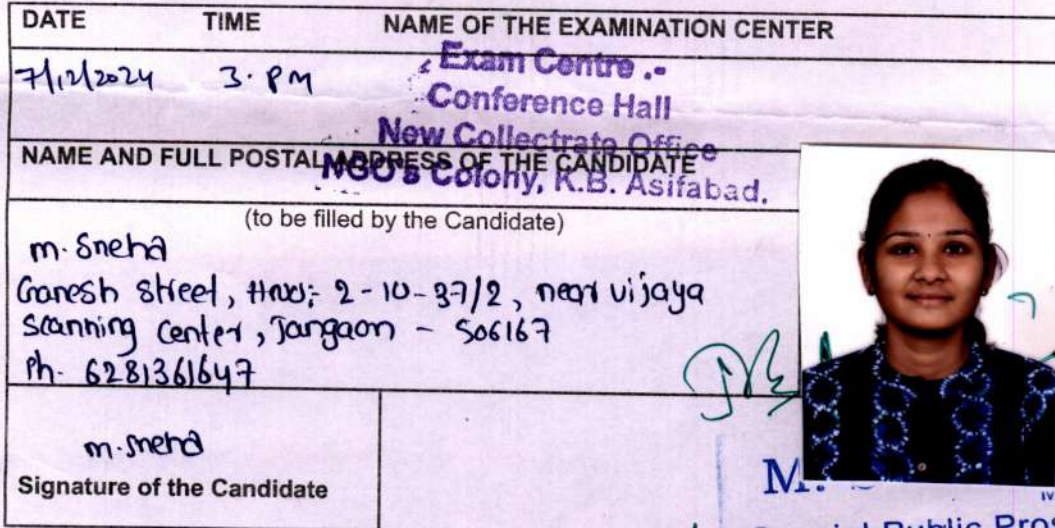 DATE TIME NAME OF THE EXAMINATION CENTER
7/12/2024 3. PM Exam Centre :-
Conference Hall
New Collectrate Office
NGO's Colony, K.B. Asifabad.
NAME AND FULL POSTAL ADDRESS OF THE CANDIDATE
(to be filled by the Candidate)
m. Sneha
Ganesh street, Hno; 2-10-37/2, near vijaya
scanning center, Jangaon - 506167
Ph- 6281361647
m. sneha
Signature of the Candidate
M.
Public